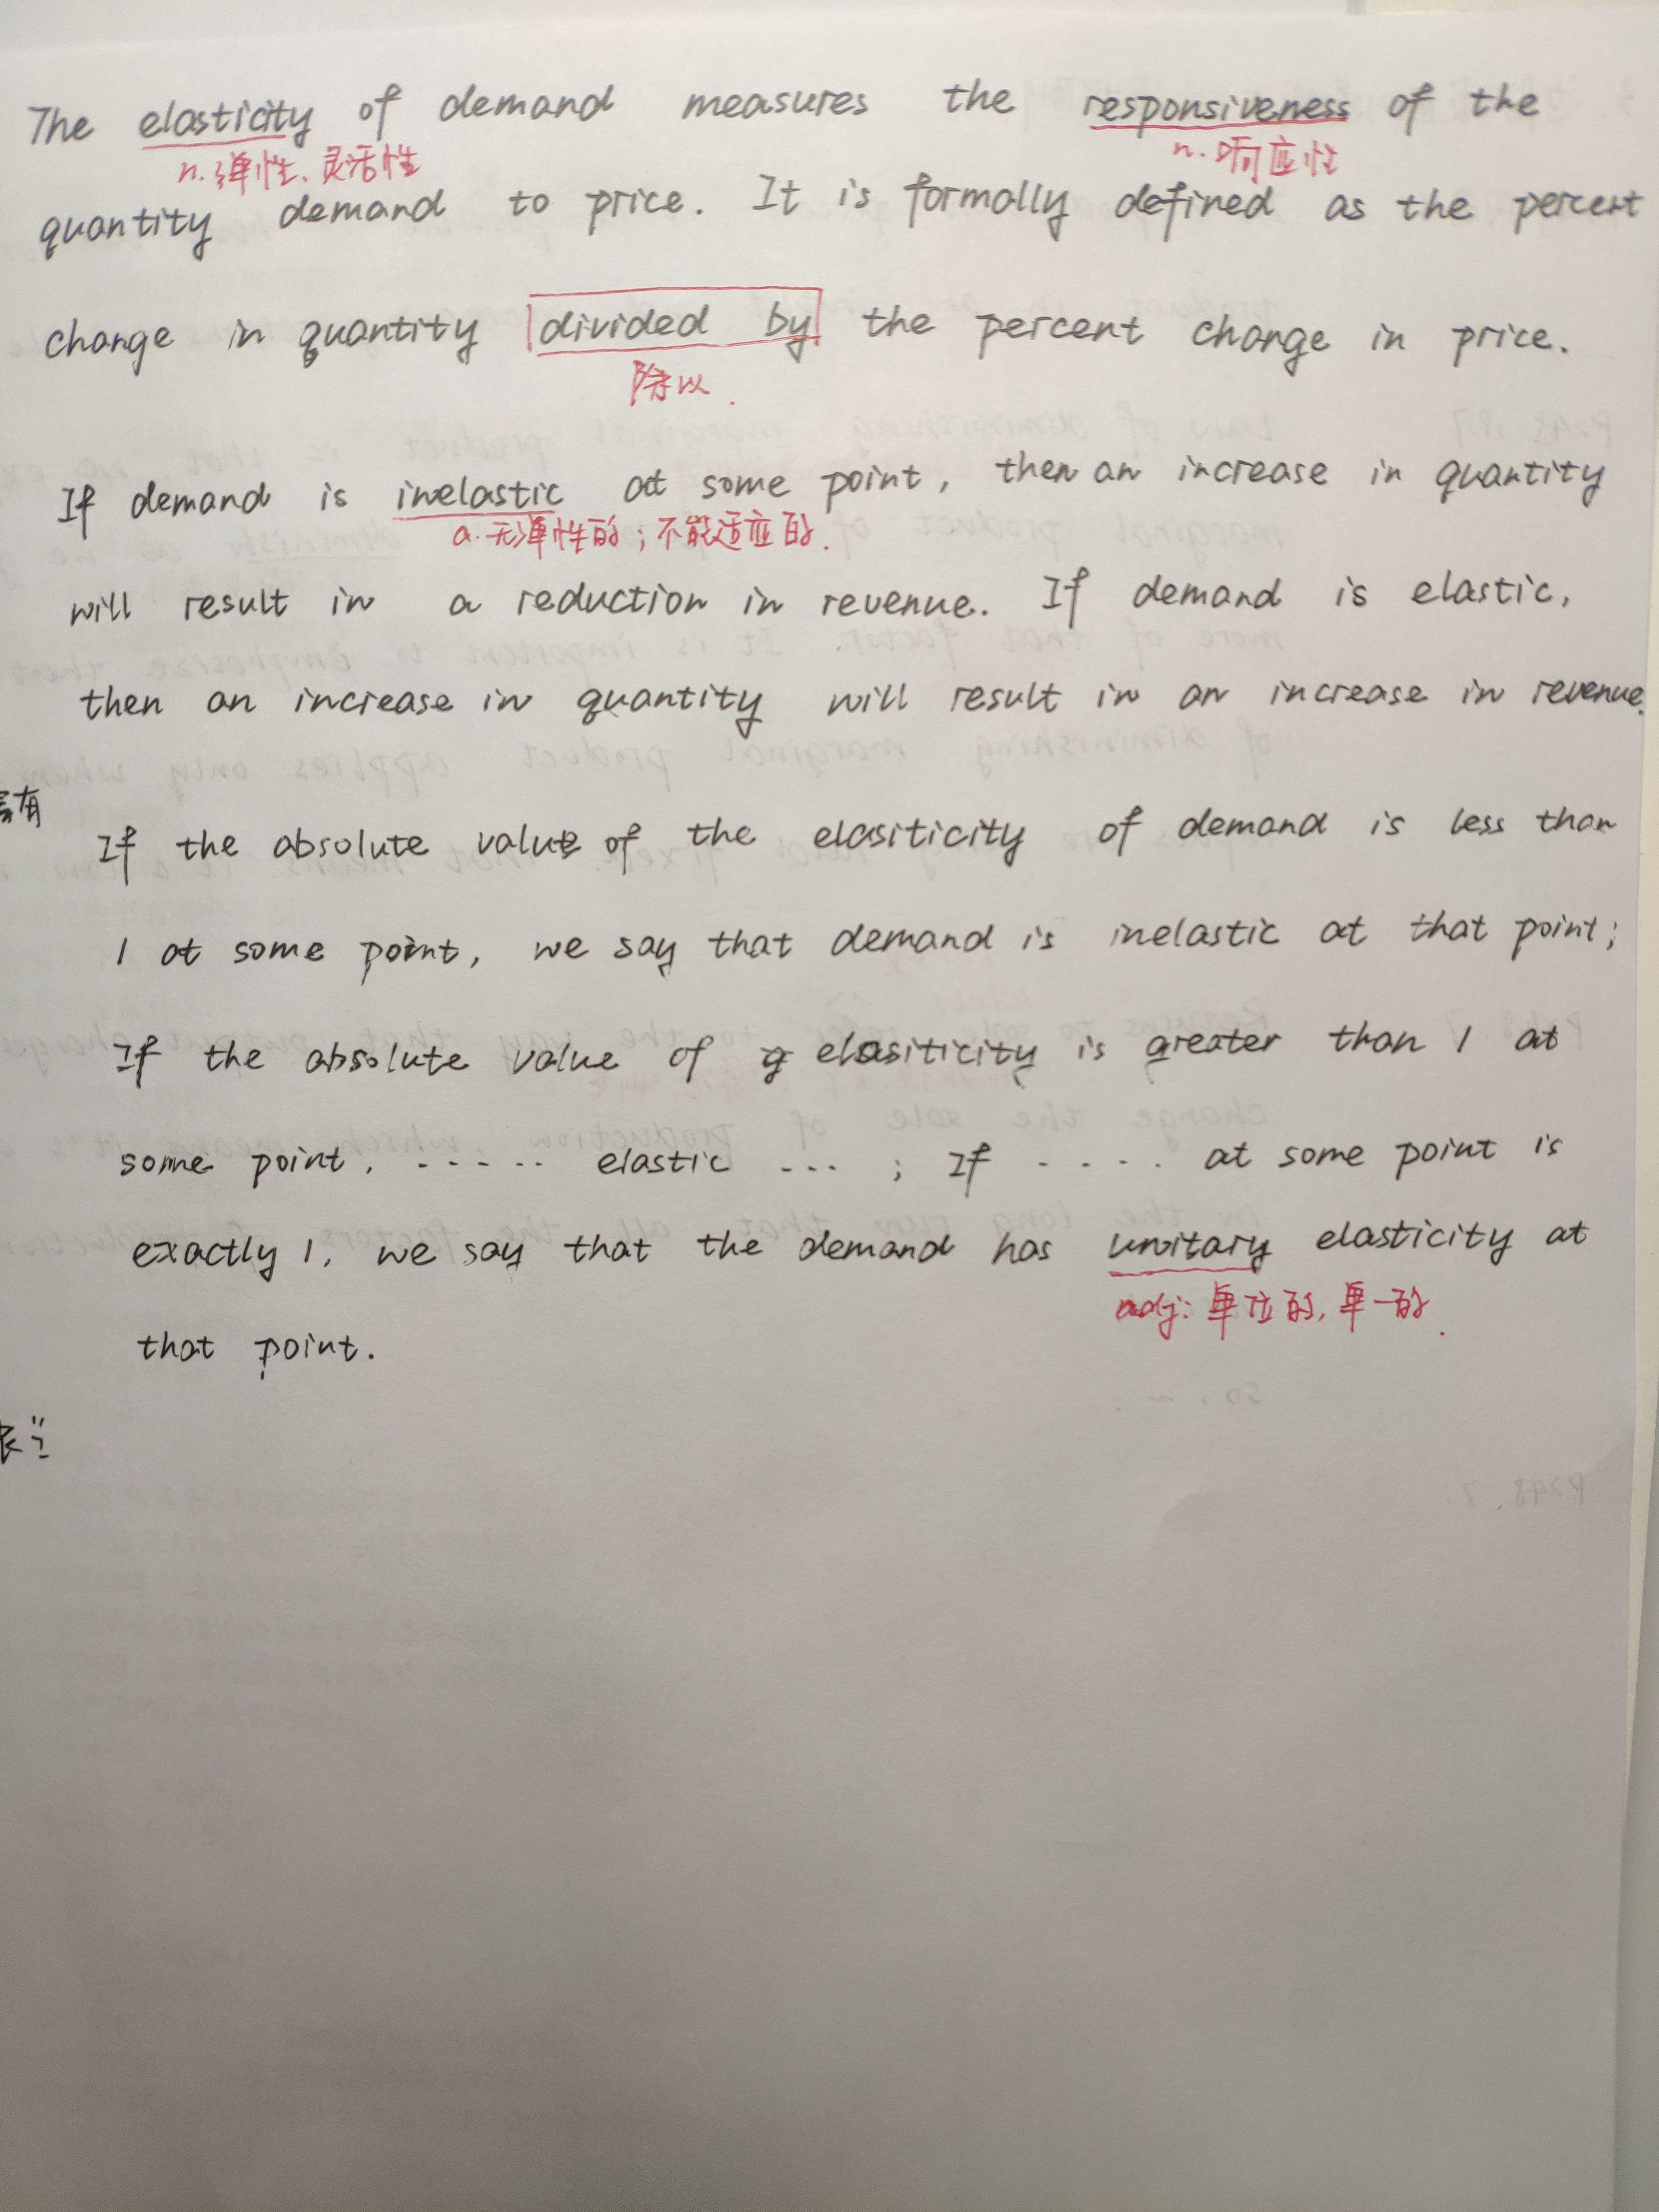 The elasticity of demand measures the responsiveness of the
n. 弹性、灵活性
n. 响应性
quantity demand to price. It is formally defined as the percent
change in quantity divided by the percent change in price.
除以.
If demand is inelastic at some point, then an increase in quantity
a. 无弹性的；不能适应的.
will result in a reduction in revenue. If demand is elastic,
then an increase in quantity will result in an increase in revenue.
有
If the absolute value of the elasiticity of demand is less than
1 at some point, we say that demand is inelastic at that point;
If the absolute value of elasiticity is greater than 1 at
some point, ...... elastic ... ; If ..... at some point is
exactly 1, we say that the demand has unitary elasticity at
adj: 单位的, 单一的.
that point.